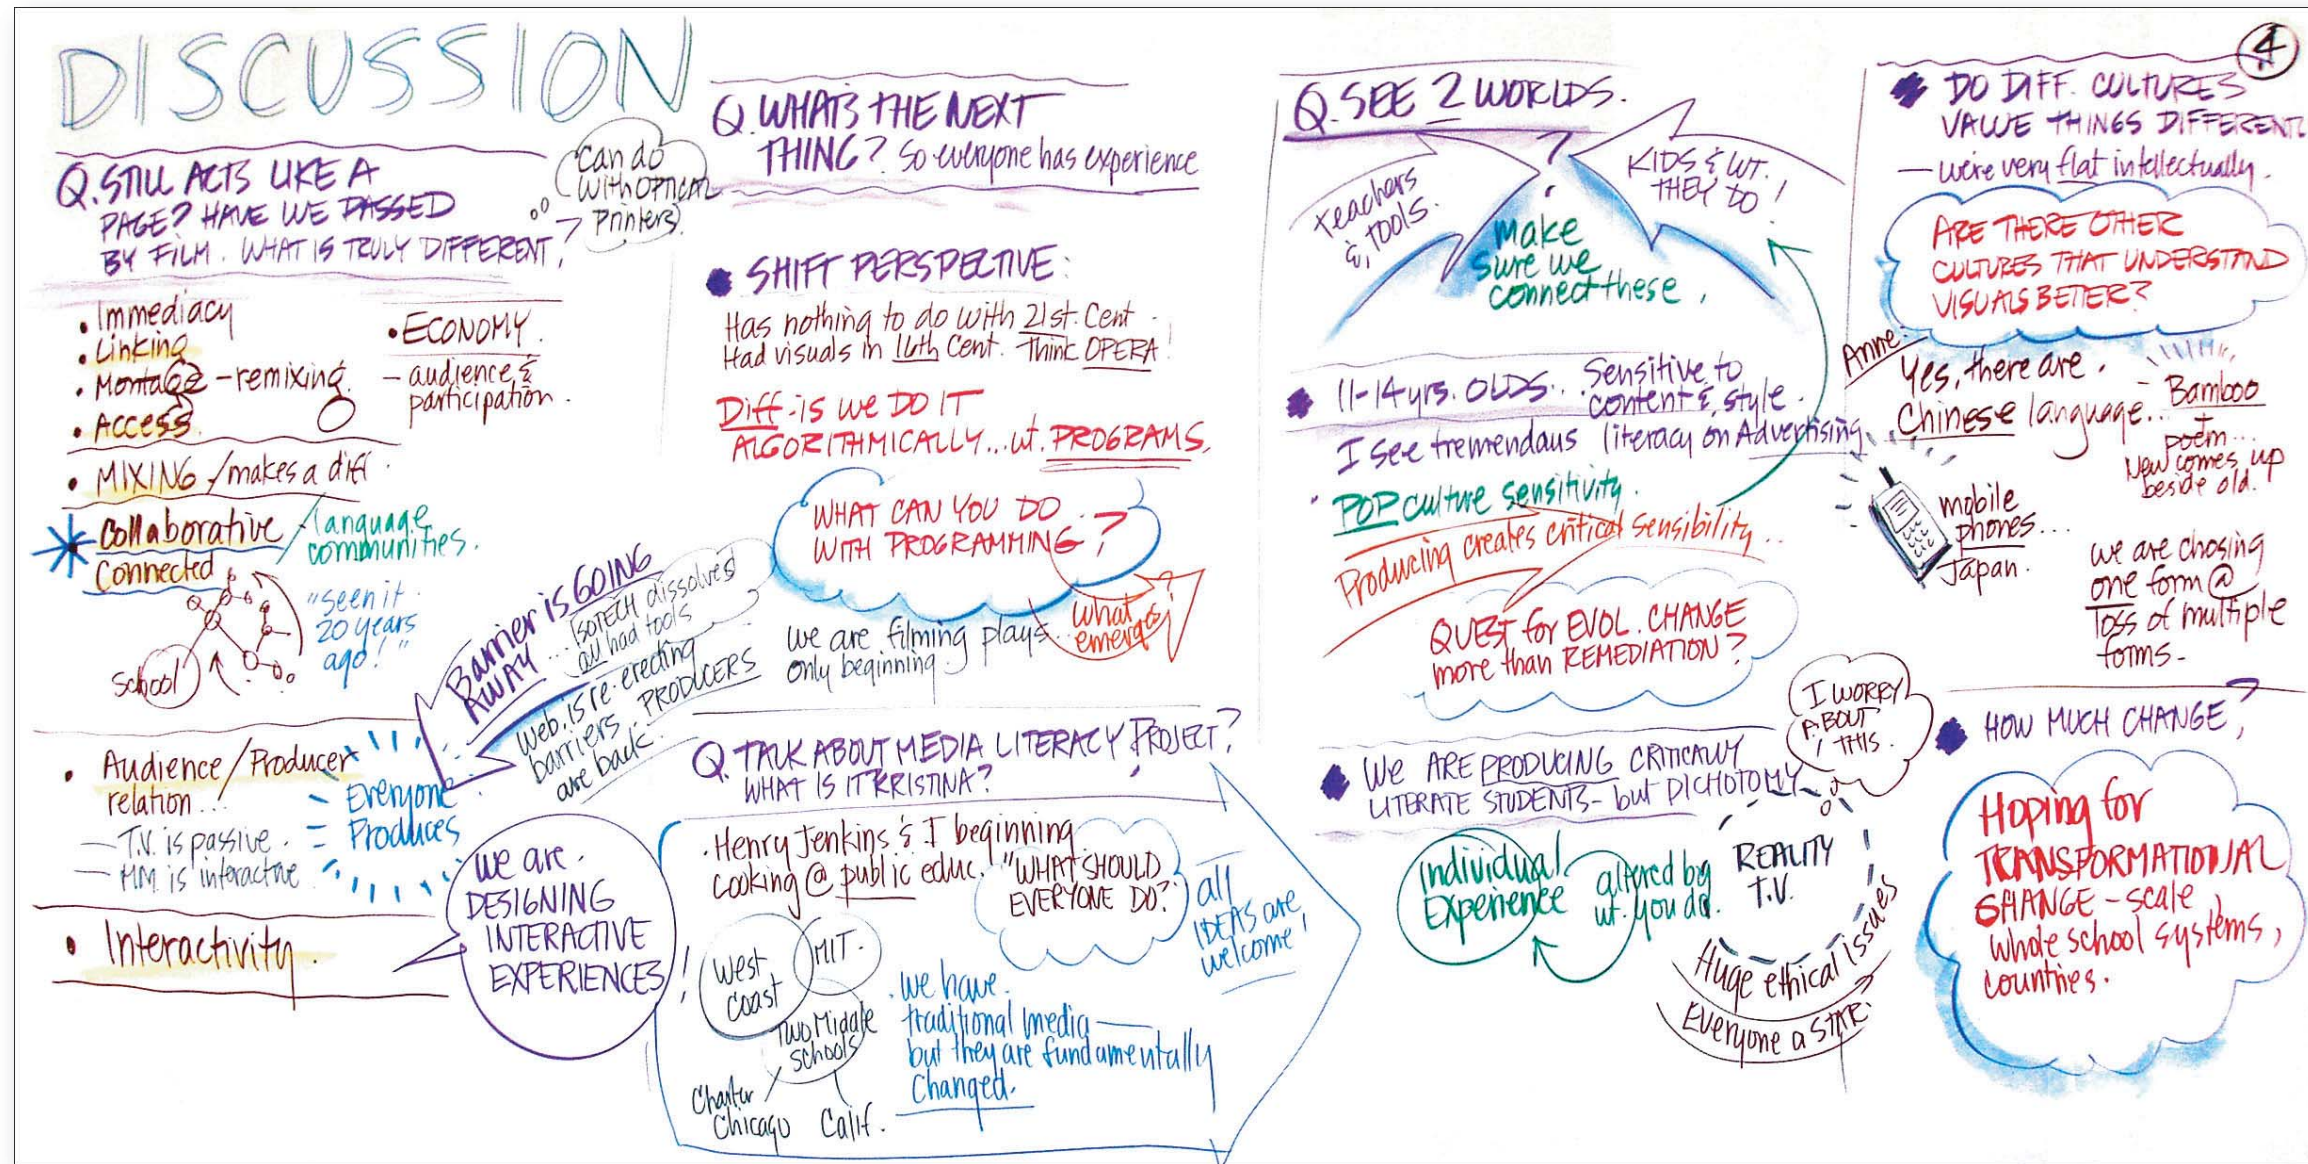 DISCUSSION
Q. STILL ACTS LIKE A
PAGE? HAVE WE PASSED
BY FILM. WHAT IS TRULY DIFFERENT?
Can do
with OPTICAL
Printers
• Immediacy
• Linking
• Montage - remixing
• Access
• ECONOMY.
- audience &
participation.
• MIXING / makes a diff.
Collaborative / language
communities.
Connected
School
"Seen it
20 years
ago!"
• Audience/Producer
relation...
- T.V. is passive.
- MM. is interactive
Everyone
Produces
• Interactivity.
we are
DESIGNING
INTERACTIVE
EXPERIENCES!
Barrier is GOING
AWAY...
ISOTECH dissolves
all had tools
Web. is re-erecting
barriers. PRODUCERS
are back.
Q. WHAT'S THE NEXT
THING? So everyone has experience
SHIFT PERSPECTIVE:
Has nothing to do with 21st. Cent.
Had visuals in 16th Cent. Think OPERA!
Diff-is we DO IT
ALGORITHMICALLY... wt. PROGRAMS.
WHAT CAN YOU DO
WITH PROGRAMMING?
What
emerges?
we are filming plays..
only beginning.
Q. TALK ABOUT MEDIA LITERACY PROJECT?
WHAT IS IT KRISTINA?
• Henry Jenkins & I beginning
cooking @ public educ.
"WHAT SHOULD
EVERYONE DO?"
all
IDEAS are
welcome!
West
Coast
MIT.
Two Middle
Schools
Charter
Chicago
Calif.
• we have
traditional media —
but they are fundamentally
Changed.
Q. SEE 2 WORLDS.
?
teachers
& TOOLS.
KIDS & WT.
THEY DO!
make
sure we
connect these.
11-14 yrs. OLDS.. Sensitive to
content & style.
I see tremendous literacy on Advertising
POP culture sensitivity.
Producing creates critical sensibility...
QUEST for EVOL. CHANGE
more than REMEDIATION?
WE ARE PRODUCING CRITICALLY
LITERATE STUDENTS - but DICHOTOMY
I WORRY
ABOUT
THIS.
Individual
Experience
altered by
wt. you do.
REALITY
T.V.
Huge ethical issues
Everyone a STAR.
4
DO DIFF. CULTURES
VALUE THINGS DIFFERENT
- we're very flat intellectually.
ARE THERE OTHER
CULTURES THAT UNDERSTAND
VISUALS BETTER?
Anne:
Yes, there are.
Chinese language..
- Bamboo
poem...
New comes up
beside old.
mobile
phones...
Japan.
we are chosing
one form @
loss of multiple
forms-
HOW MUCH CHANGE?
Hoping for
TRANSFORMATIONAL
CHANGE - scale,
whole school systems,
countries.